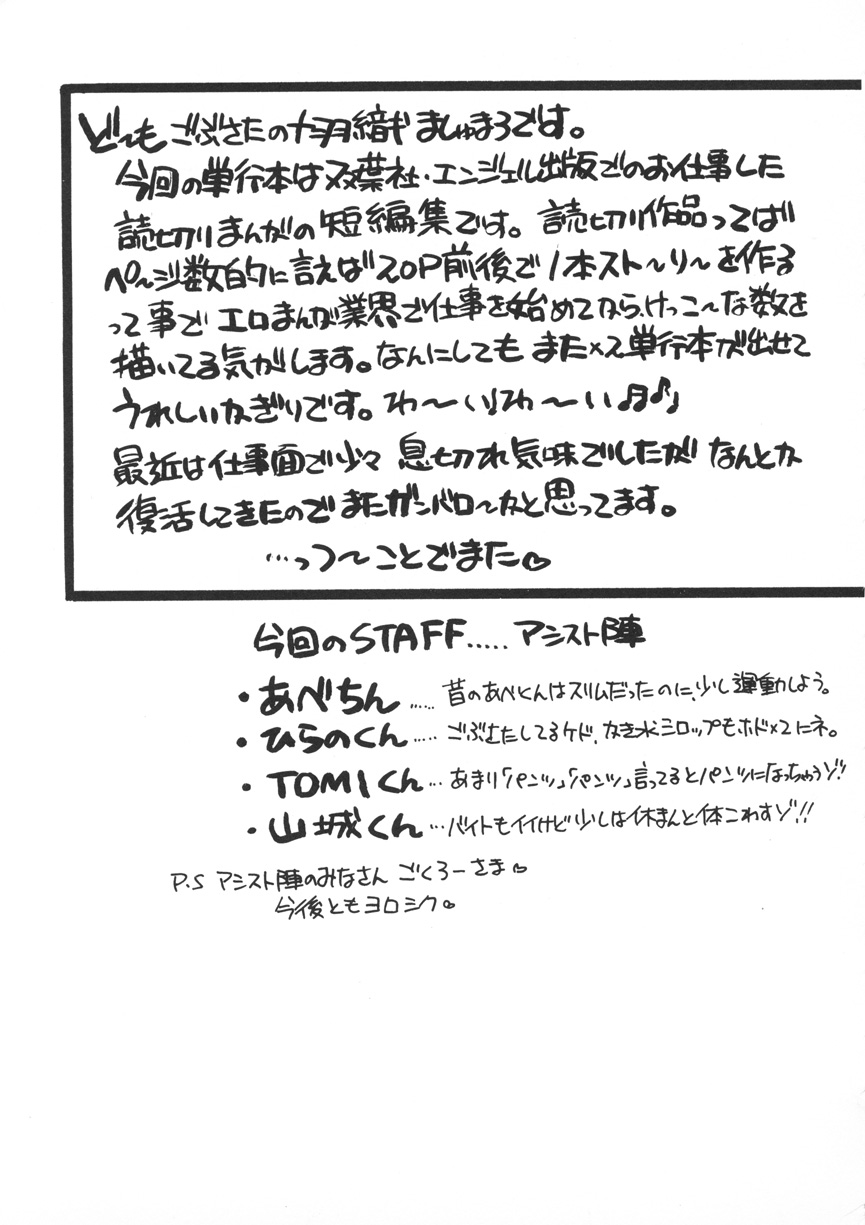 ど〜も ごぶさたの 十羽織 ましゅまろです。
今回の単行本は双葉社・エンジェル出版でのお仕事した
読切りまんがの短編集です。読切り作品ってば
ペ〜ジ数的に言えば20P前後で1本スト〜リ〜を作る
って事で エロまんが業界で仕事を始めてから、けっこ〜な数を
描いてる気がします。なんにしても また×2単行本が出せて
うれしいかぎりです。わ〜い♪わ〜い♫♪
最近は仕事面で少々 息切れ気味でしたが なんとか
復活してきたのでまたガンバロ〜かと思ってます。
…っつ〜ことでまた♡
今回のSTAFF..... アシスト陣
・あべちん …… 昔のあべくんはスリムだったのに、少し運動しよう。
・ひらのくん ..... ごぶさたしてるケド、かき氷シロップもホド×2にネ。
・TOMIくん … あまり「パンツ」「パンツ」言ってるとパンツになっちゃうゾ!!
・山城くん … バイトもイイけど少しは休まんと体こわすゾ!!
P.S アシスト陣のみなさん ごくろーさま♡
今後ともヨロシク♡